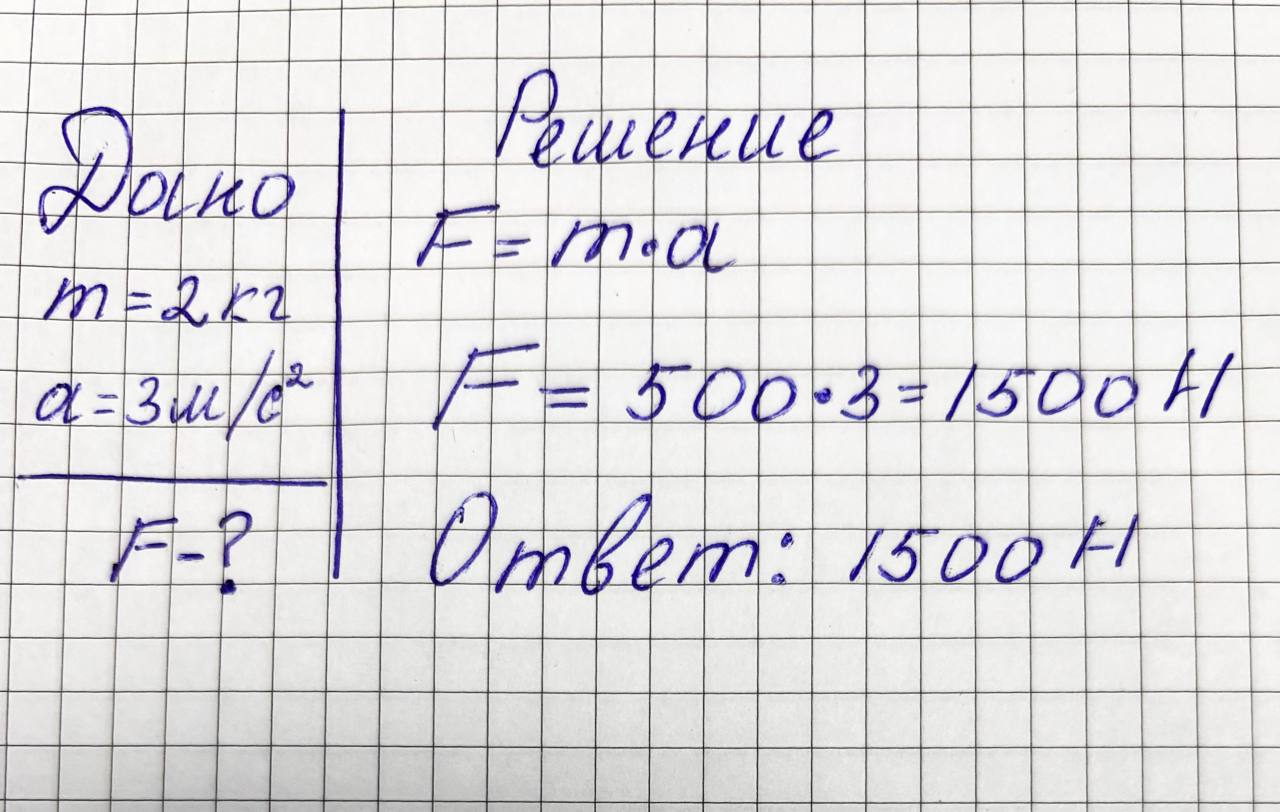 Дано
m = 2 кг
a = 3 м/с²
F - ?
Решение
F = m · a
F = 500 · 3 = 1500 Н
Ответ: 1500 Н